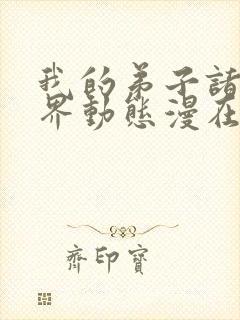 我的弟子諸
界動態漫在
齊印寶